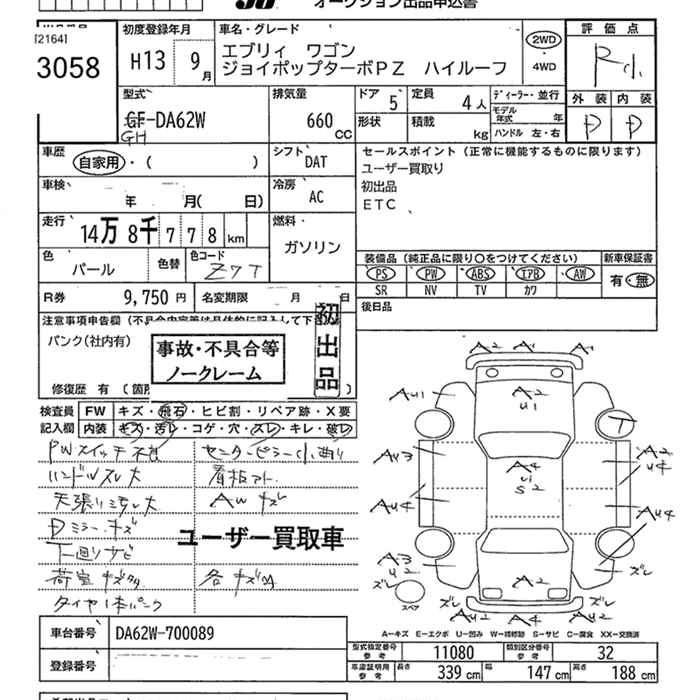 オークション出品申込書
[2164]
3058
初度登録年月
H13 9月
車名・グレード
エブリィ ワゴン
ジョイポップターボPZ ハイルーフ
2WD
4WD
評価点
R
外装 内装
D D
型式
GF-DA62W
GH
排気量
660 CC
ドア 5
定員 4人
形状
積載 kg
ディーラー・並行
モデル年式 年
ハンドル 左・右
車歴
自家用・( )
シフト
DAT
セールスポイント(正常に機能するものに限ります)
ユーザー買取り
初出品
ETC
車検
年 月( 日)
冷房
AC
走行
14万8千778km
燃料
ガソリン
色
パール
色替
色コード
Z7T
装備品(純正品に限り○をつけてください)
新車保証書
PS PW ABS エアB AW
有・無
SR NV TV カワ
R券 9,750円
名変期限 月 日
後日品
注意事項申告欄(不具合内容等は具体的に記入して下さい
パンク(社内有)
事故・不具合等
ノークレーム
初出品
修復歴 有 (箇所
検査員 FW キズ・飛石・ヒビ割・リペア跡・X要
記入欄 内装 キズ・汚レ・コゲ・穴・スレ・キレ・破レ
PWスイッチ不良
センターピラー小曲り
ハンドルスレ大
看板アト
天張り汚レ大
AWキズ
Dミラーキズ
下回りサビ
ユーザー買取車
荷室キズ
各キズ凹
タイヤ1本パンク
A2 A1 A1
AU1
A2
U1
T
AU3
A4
U1
S2
A2
U4
AU4
AU4
A3
U2
ズレ
スペア
A2
ズレ
ズレ
A2 A4
ズレ
A2
車台番号 DA62W-700089
登録番号
A-キズ E-エクボ U-凹み W-補修跡 S-サビ C-腐食 XX-交換済
型式指定番号 参考 11080
類別区分番号 参考 32
車庫証明用 参考 長さ 339cm 幅 147cm 高さ 188cm